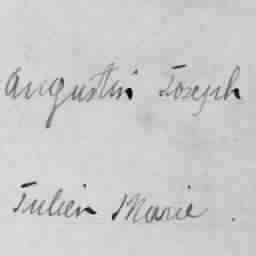 Augustin Joseph
Julien Marie .